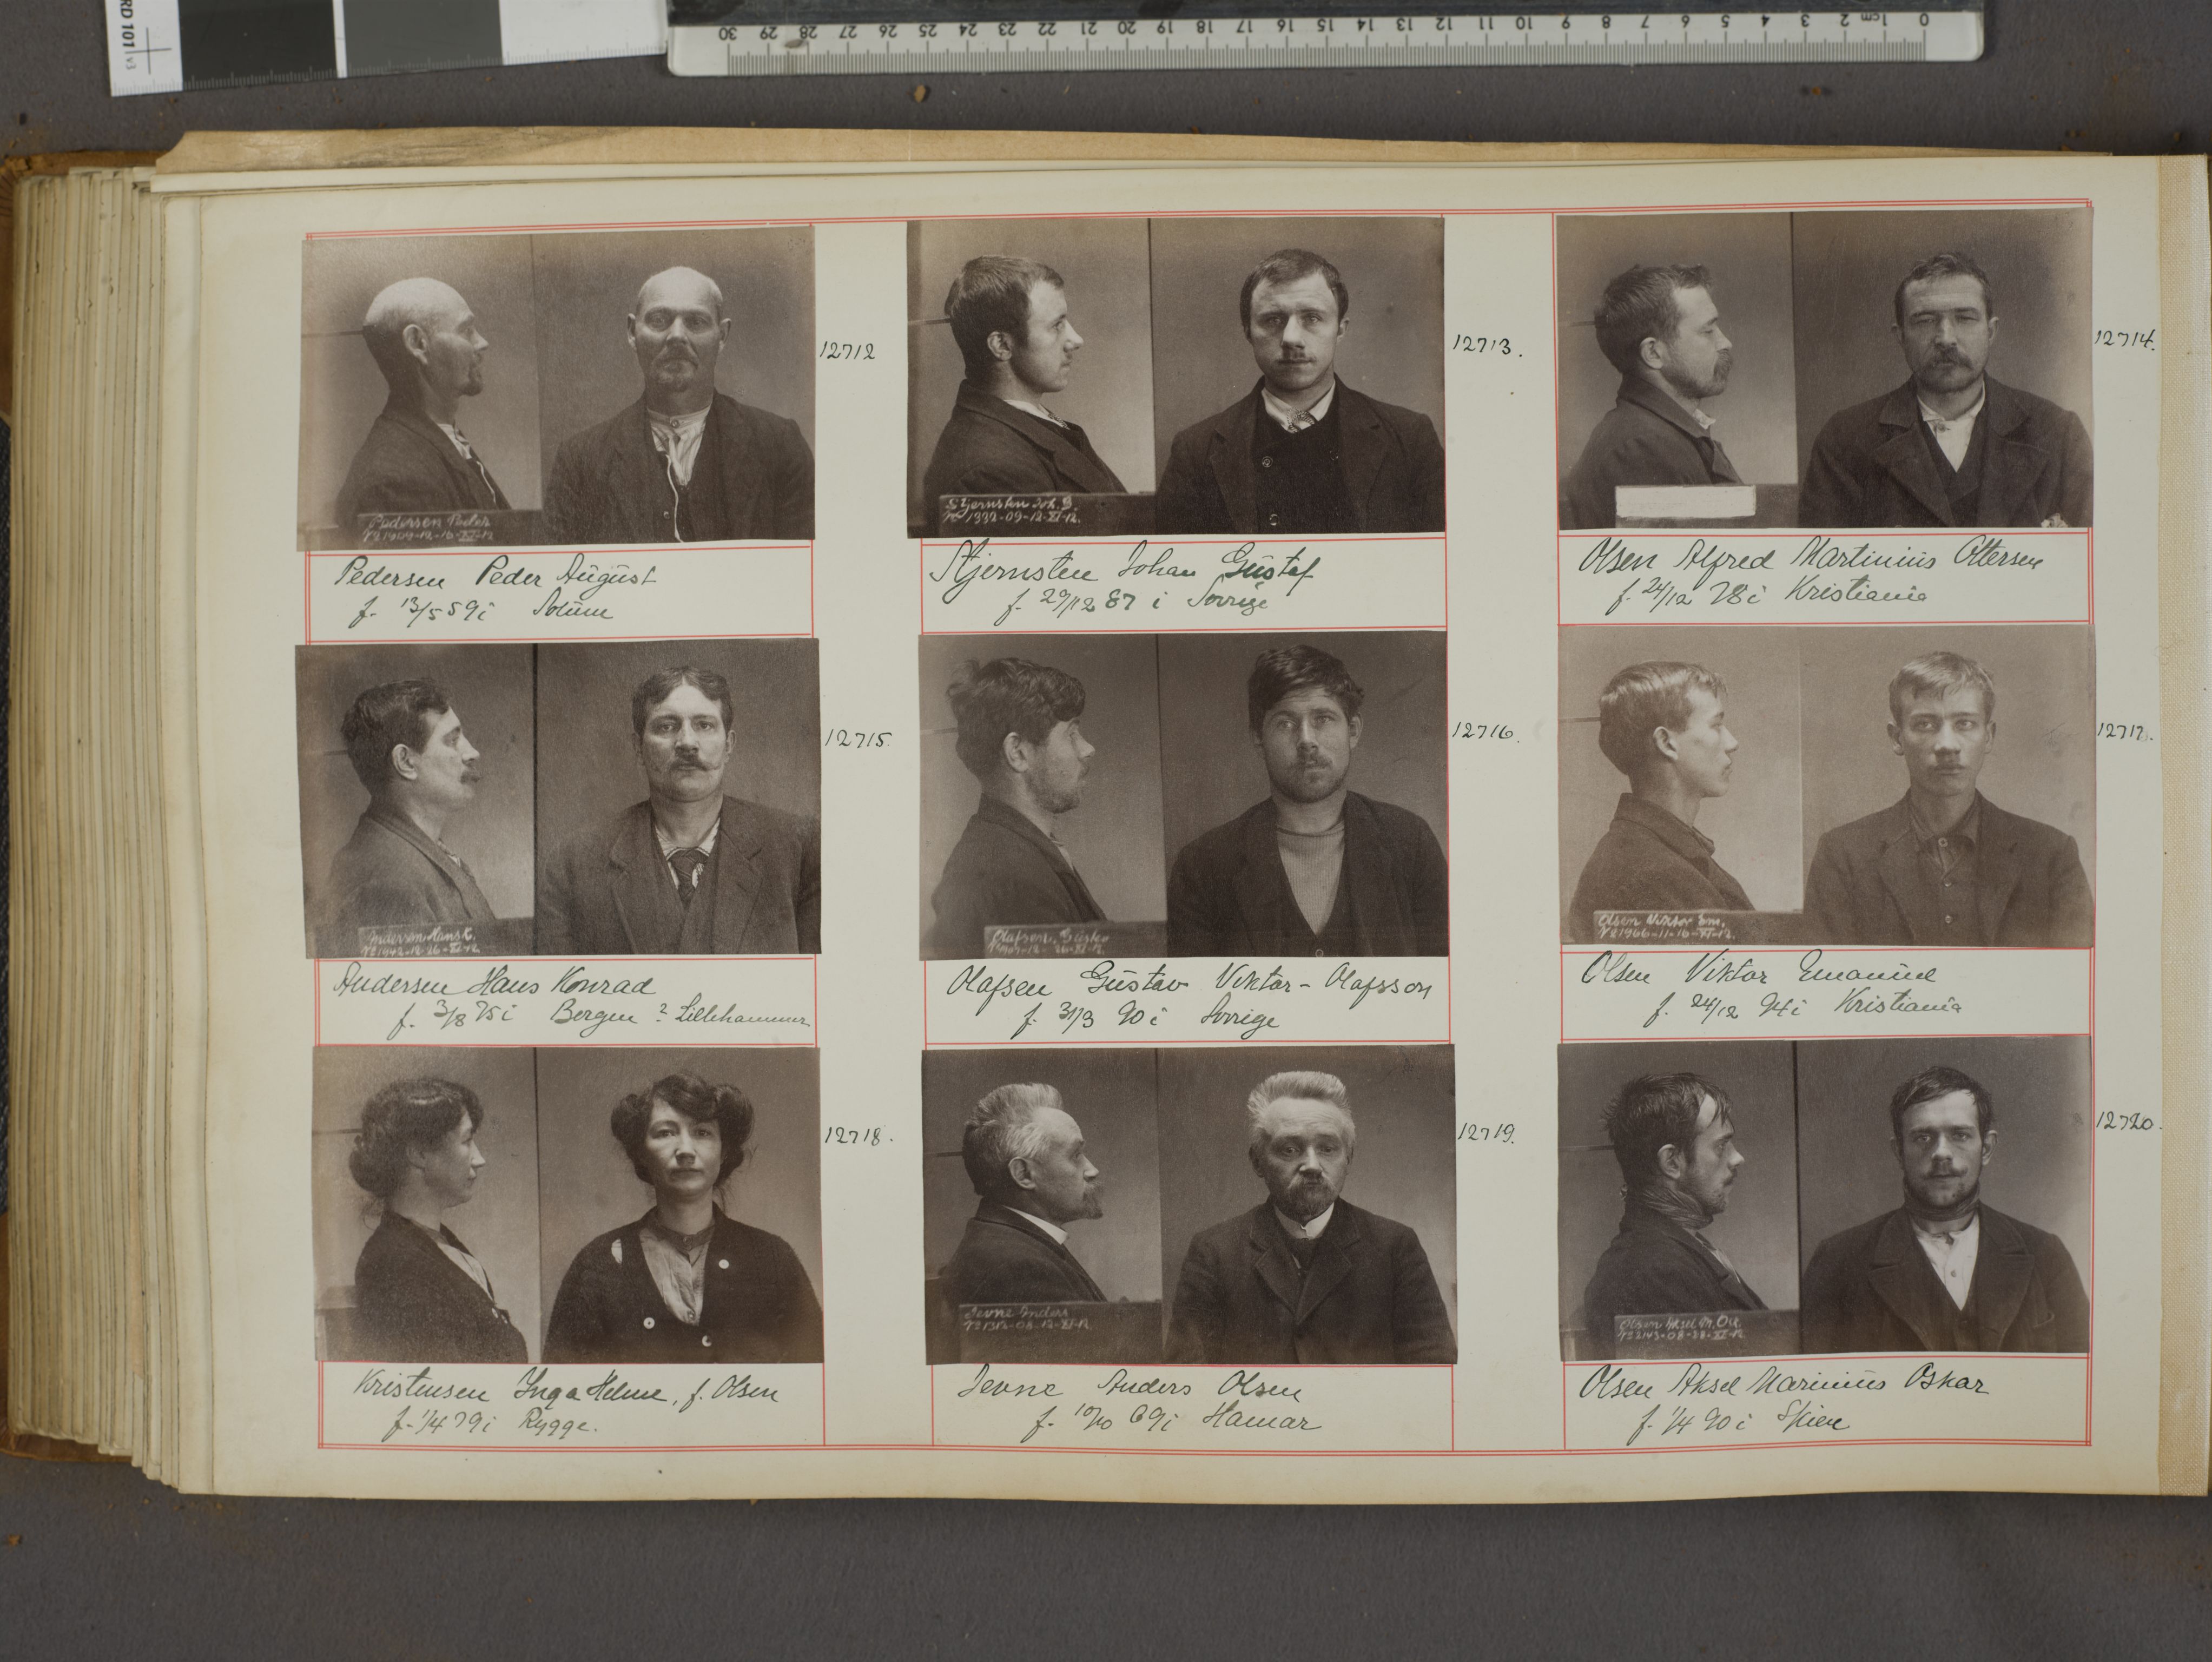 RD 101 v3
30 29 28 27 26 25 24 23 22 21 20 19 18 17 16 15 14 13 12 11 10 9 8 7 6 5 4 3 2 1cm 0
Pedersen Peder
12712
Pedersen Peder August
f. 13/5 59 i Solum
Stjernsten Joh. G.
12713.
Stjernsten Johan Gustaf
f. 29/12 87 i Sverige
12714.
Olsen Alfred Martinius Ottersen
f. 24/12 78 i Kristiania
Andersen Hans K.
№ 1942-12-26-XI-12.
12715.
Andersen Hans Konrad
f. 3/8 75 i Bergen ? Lillehammer
Olafsen, Gustav
12716.
Olafsen Gustav Viktor - Olafsson
f. 31/3 90 i Sverige
Olsen Viktor Em.
№ 1966-11-16-XI-12.
12717.
Olsen Viktor Emanuel
f. 24/12 94 i Kristiania
12718.
Kristensen Inga Helene, f. Olsen
f. 1/4 79 i Rygge.
Jevne Anders
№ 1312-08-12-XI-12.
12719.
Jevne Anders Olsen
f. 10/10 69 i Hamar
Olsen Aksel M. Os.
12720.
Olsen Aksel Marinius Oskar
f. 1/4 90 i Skien